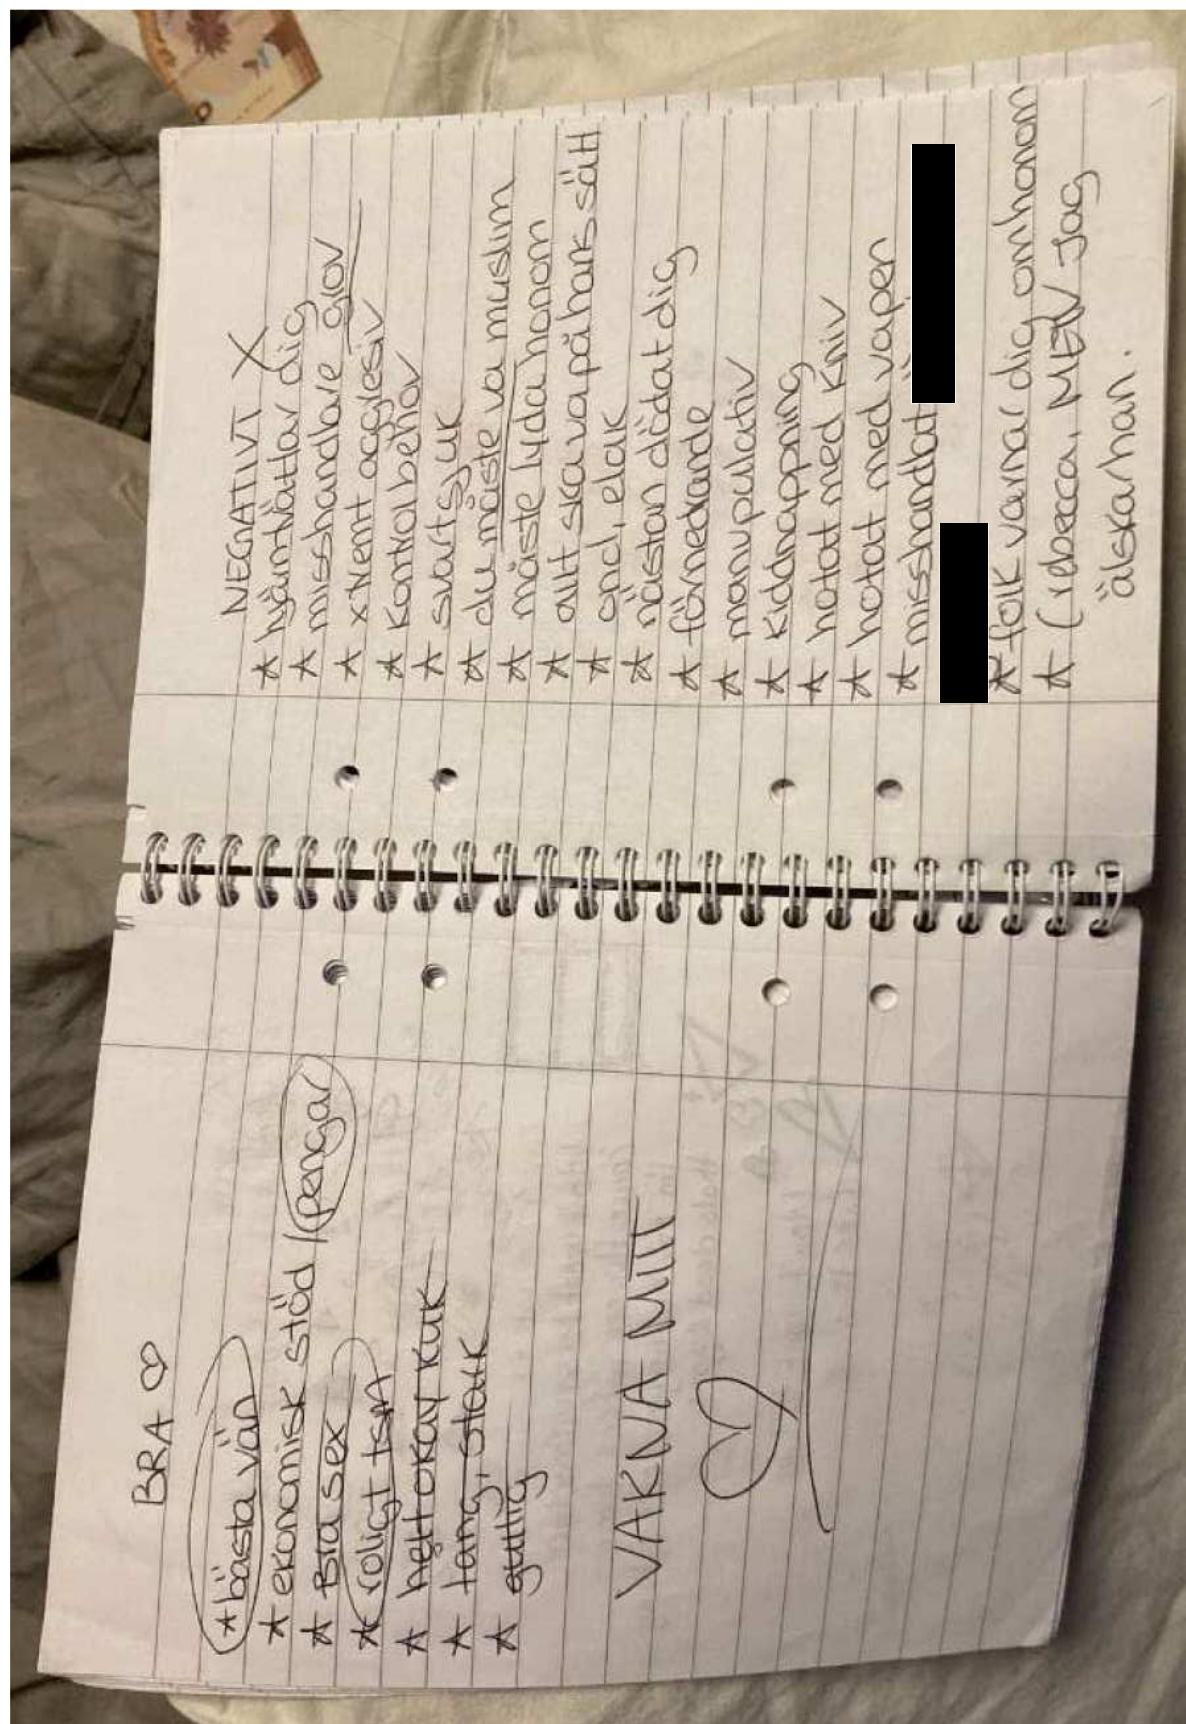 BRA ♡
* bästa vän
* ekonomisk stöd / pengar
* Bra sex
* roligt tsm
* helt okay kuk
* lång, stark
* gullig
VAKNA MITT
♡
NEGATIVT X
* hjärntvättar dig
* misshandlare grov
* xtremt agglesiv
* Kontrolbehov
* svartsjuk
* du måste va muslim
* måste lyda honom
* allt ska va på hans sätt
* ond, elak
* nästan dödat dig
* förnedrande
* manupulativ
* Kiddnappning
* hotat med Kniv
* hotat med vapen
* misshandlat
* folk varnar dig om honom
* (rebecca, MEN Jag
älskar han.